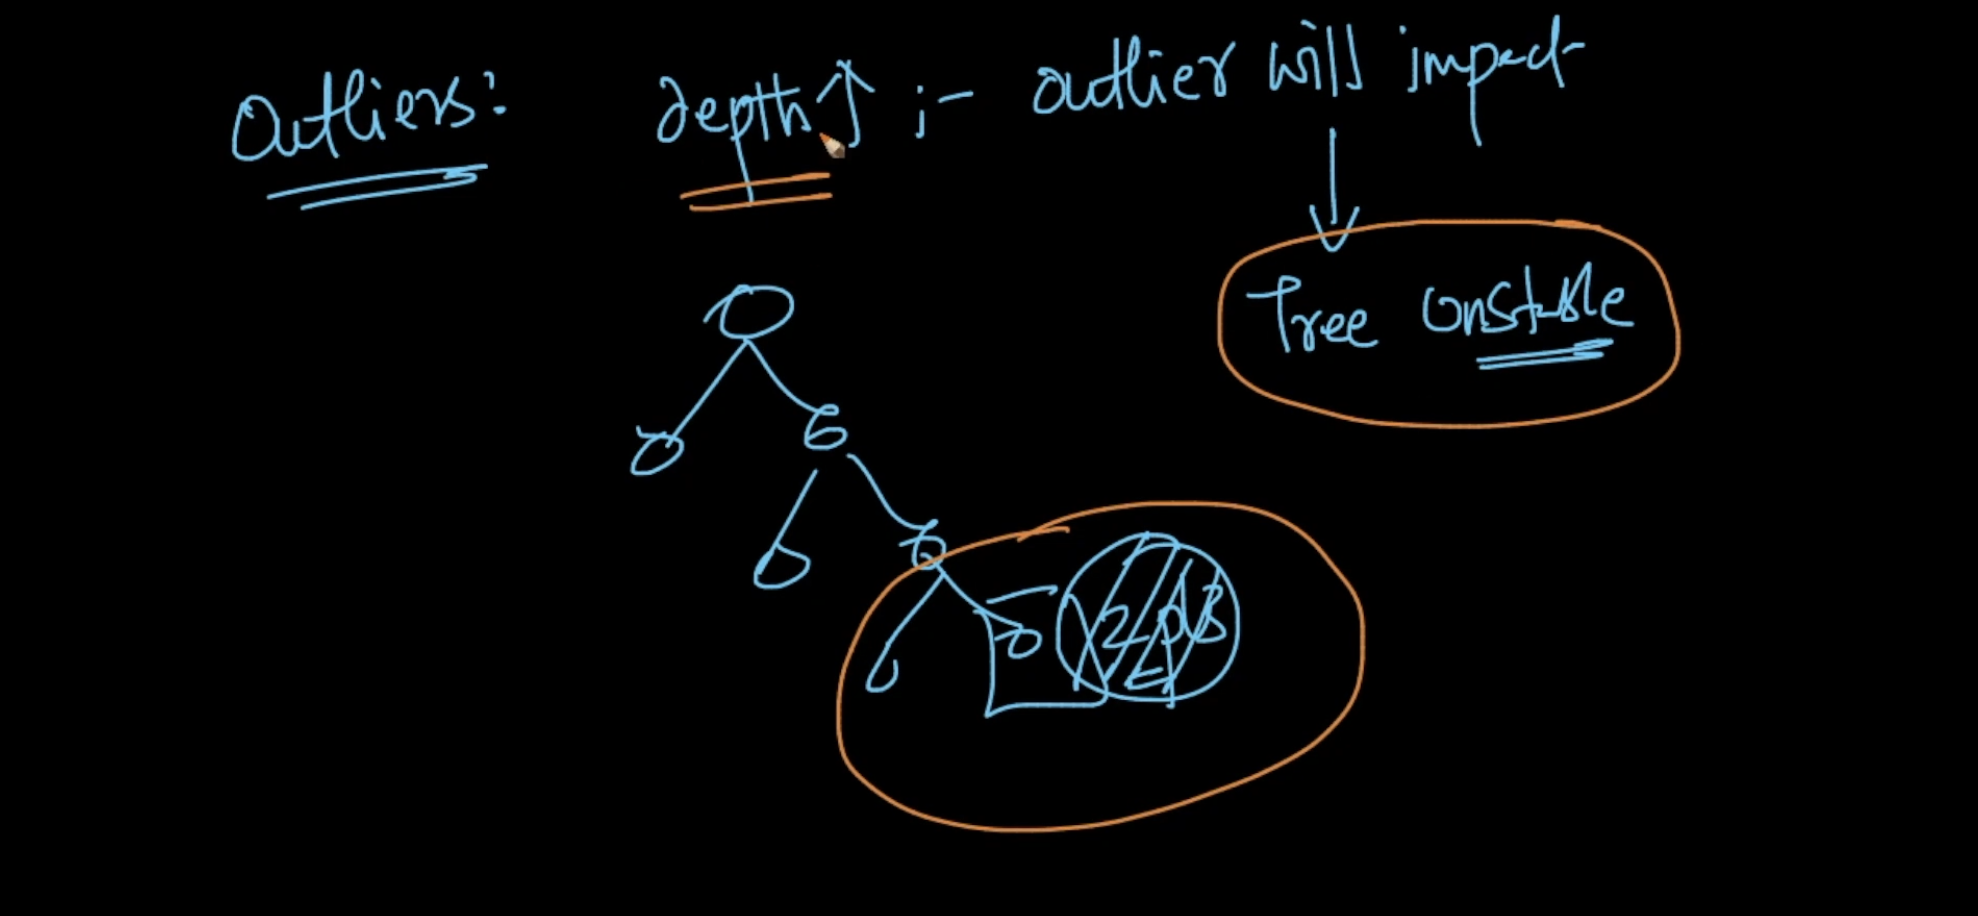 Outliers: depth↑ ;- outlier will impact
Tree unstable
2 pts